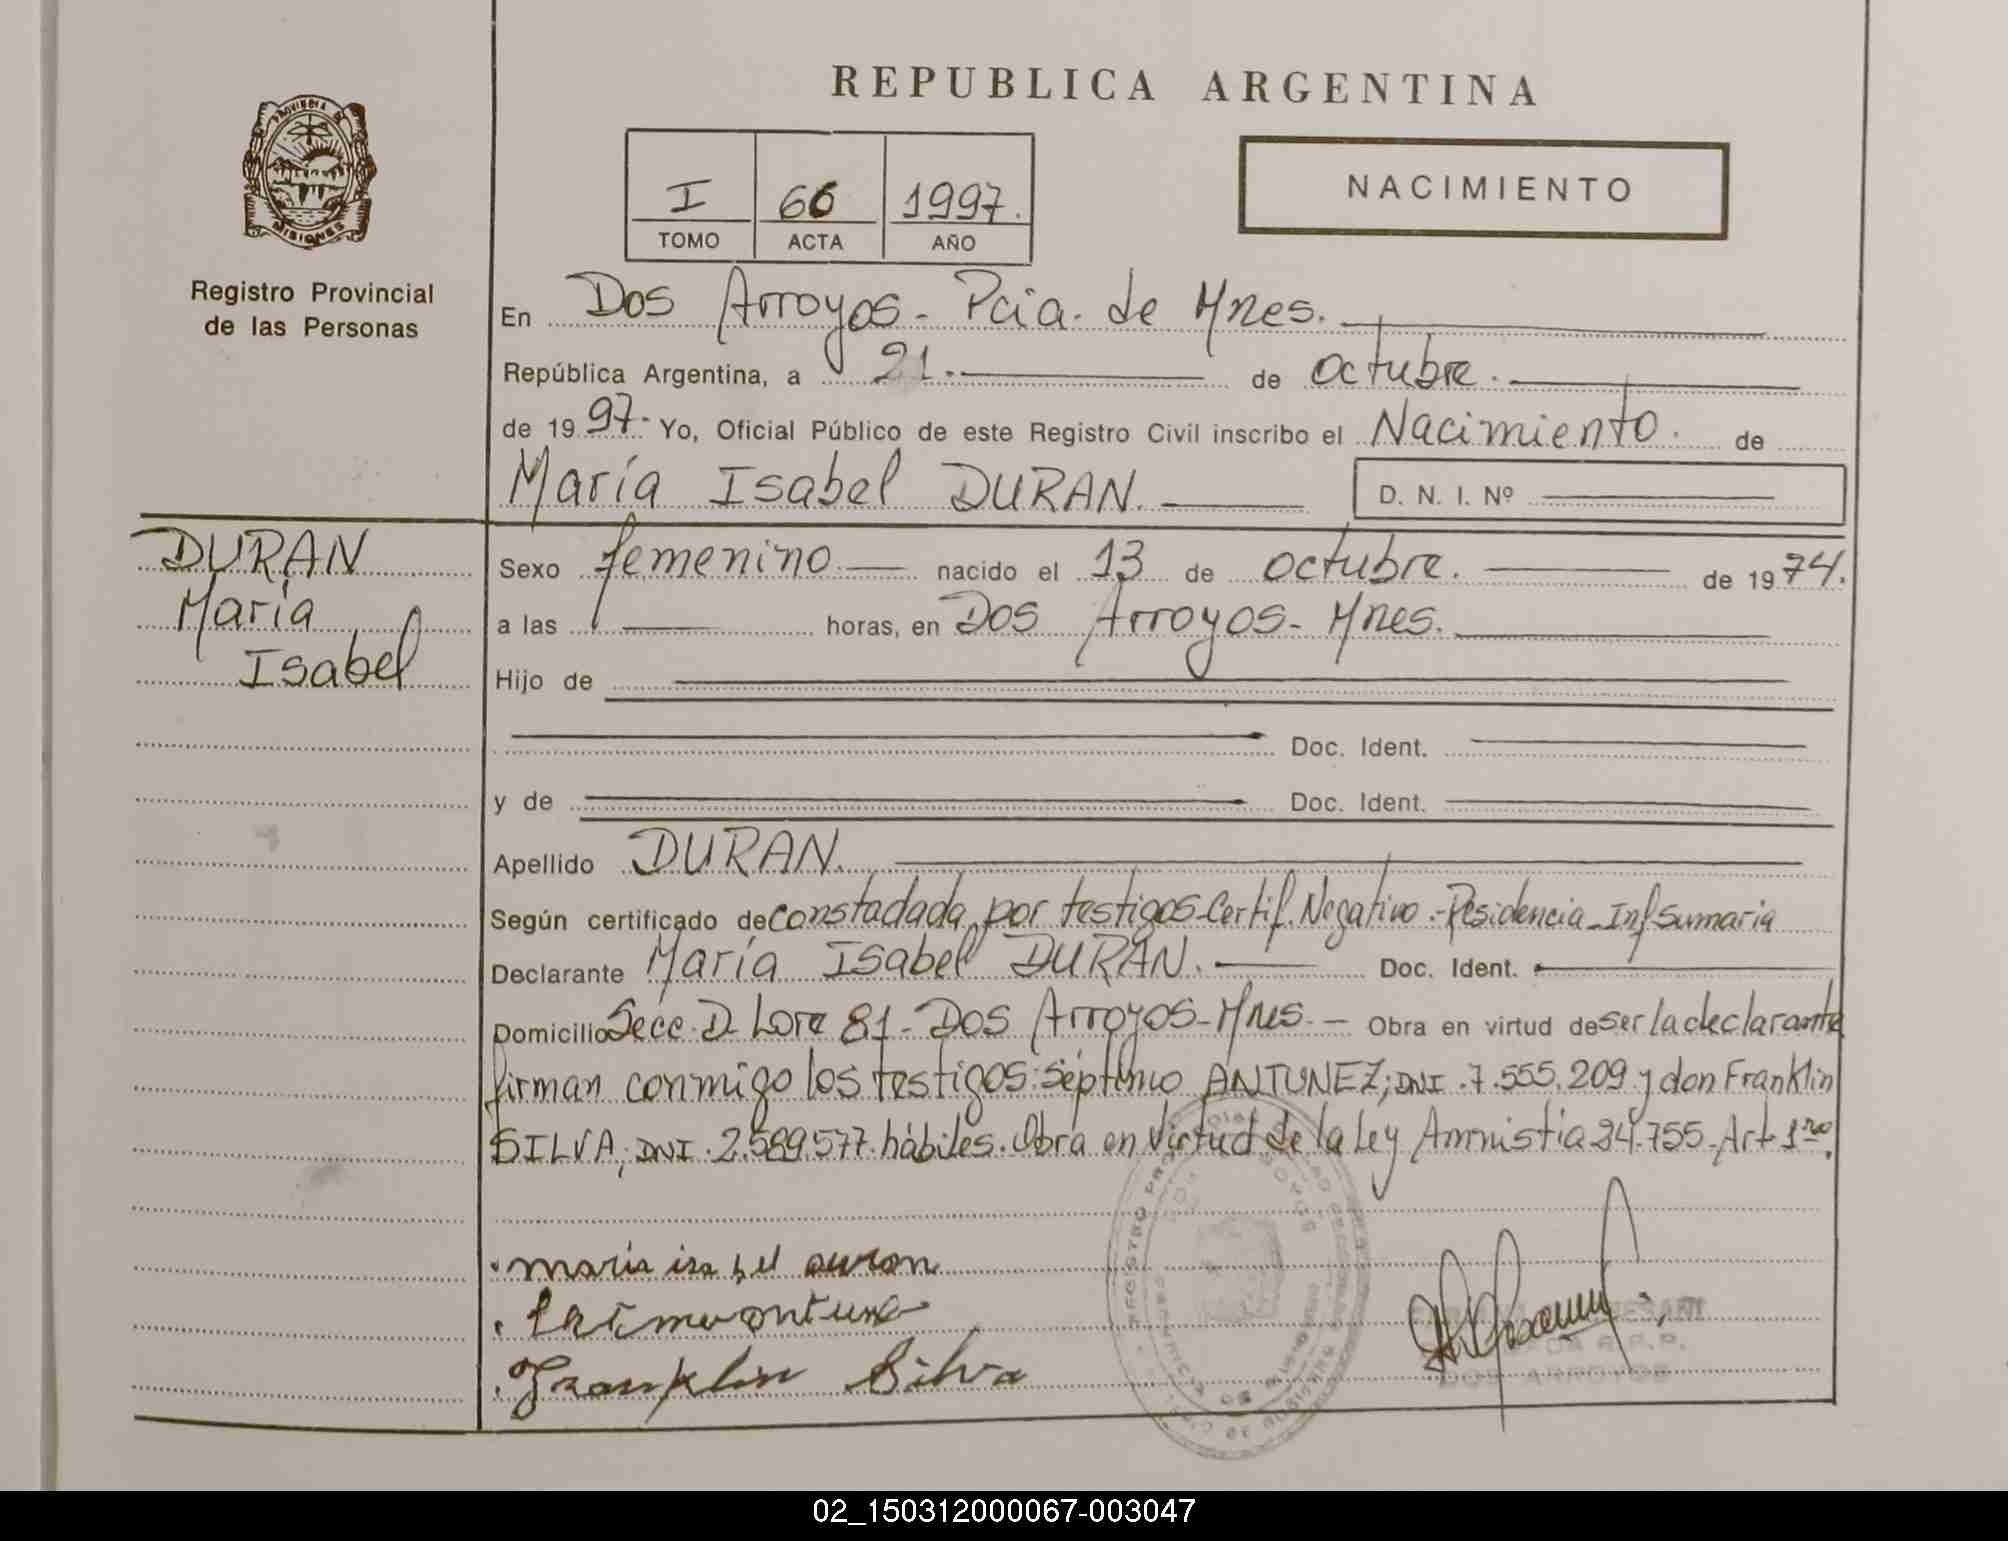 REPUBLICA ARGENTINA
PROVINCIA DE
MISIONES
Registro Provincial
de las Personas
I 66 1997.
TOMO ACTA AÑO
NACIMIENTO
En Dos Arroyos - Pcia. de Mnes.
República Argentina, a 21. de octubre.
de 1997. Yo, Oficial Público de este Registro Civil inscribo el Nacimiento. de
María Isabel DURAN. D. N. I. Nº
DURAN
María
Isabel
Sexo femenino nacido el 13 de octubre. de 1974.
a las horas, en Dos Arroyos - Mnes.
Hijo de
Doc. Ident.
y de Doc. Ident.
Apellido DURAN.
Según certificado de constadada por testigos - Certif. Negativo. - Residencia - Inf Sumaria
Declarante María Isabel DURAN. Doc. Ident.
Domicilio Secc. D Lote 81 - Dos Arroyos - Mnes. - Obra en virtud de ser la declarante
firman conmigo los testigos: séptimo ANTUNEZ; DNI. 7.555.209 y don Franklin
SILVA; DNI. 2.589.577. hábiles. Obra en Virtud de la Ley Amnistia 24.755 - Art 1ro.
maria isabel duran
Franklin Silva
DOS ARROYOS
02_150312000067-003047